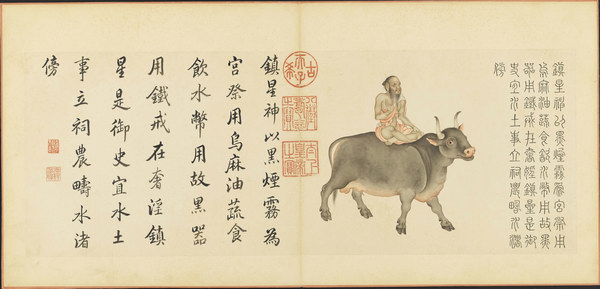 鎮星神以黑煙霧為宮祭用
烏麻油蔬食飲水幣用故黑
器用鐵戒在奢淫鎮星是御
史宜水土事立祠農疇水渚
傍
古希天子
八徵耄念之寶
太上皇帝之寶
鎮星神以黑煙霧為
宮祭用烏麻油蔬食
飲水幣用故黑器
用鐵戒在奢淫鎮
星是御史宜水土
事立祠農疇水渚
傍